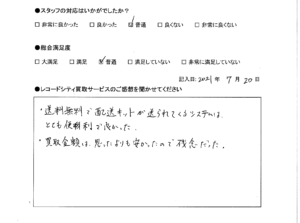 ●スタッフの対応はいかがでしたか？
□非常に良かった □良かった ☑普通 □良くない □非常に良くない
●総合満足度
□大満足 □満足 ☑普通 □満足していない □非常に満足していない
記入日：2021年 7月 20日
●レコードシティ買取サービスのご感想を聞かせてください
・送料無料で配送キットが送られてくるシステムは、
とても便利で良かった。
・買取金額は、思ったよりも安かったので残念だった。